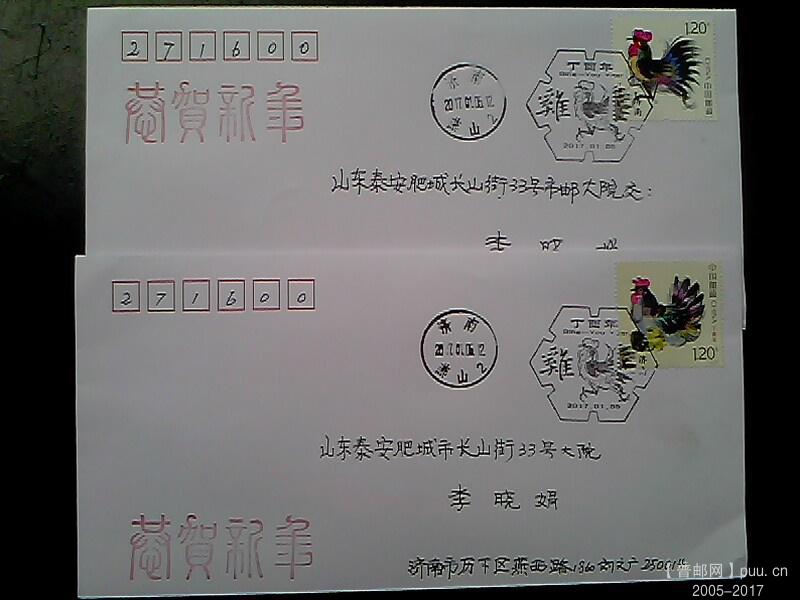 271600
1.20元
中国邮政 CHINA
恭贺新年
济南
2017.01.05.12
泺山 2
丁酉年
Ding-You Year
雞
济南
2017.01.05
山东泰安肥城长山街33号市邮大院交:
李 晓
271600
中国邮政 CHINA
1.20元
济南
2017.01.05.12
泺山 2
丁酉年
Ding-You Year
雞
2017.01.05
山东泰安肥城市长山街33号大院
李 晓 娟
恭贺新年
济南市历下区燕西路180 刘文广 250014
【普邮网】puu.cn
2005-2017